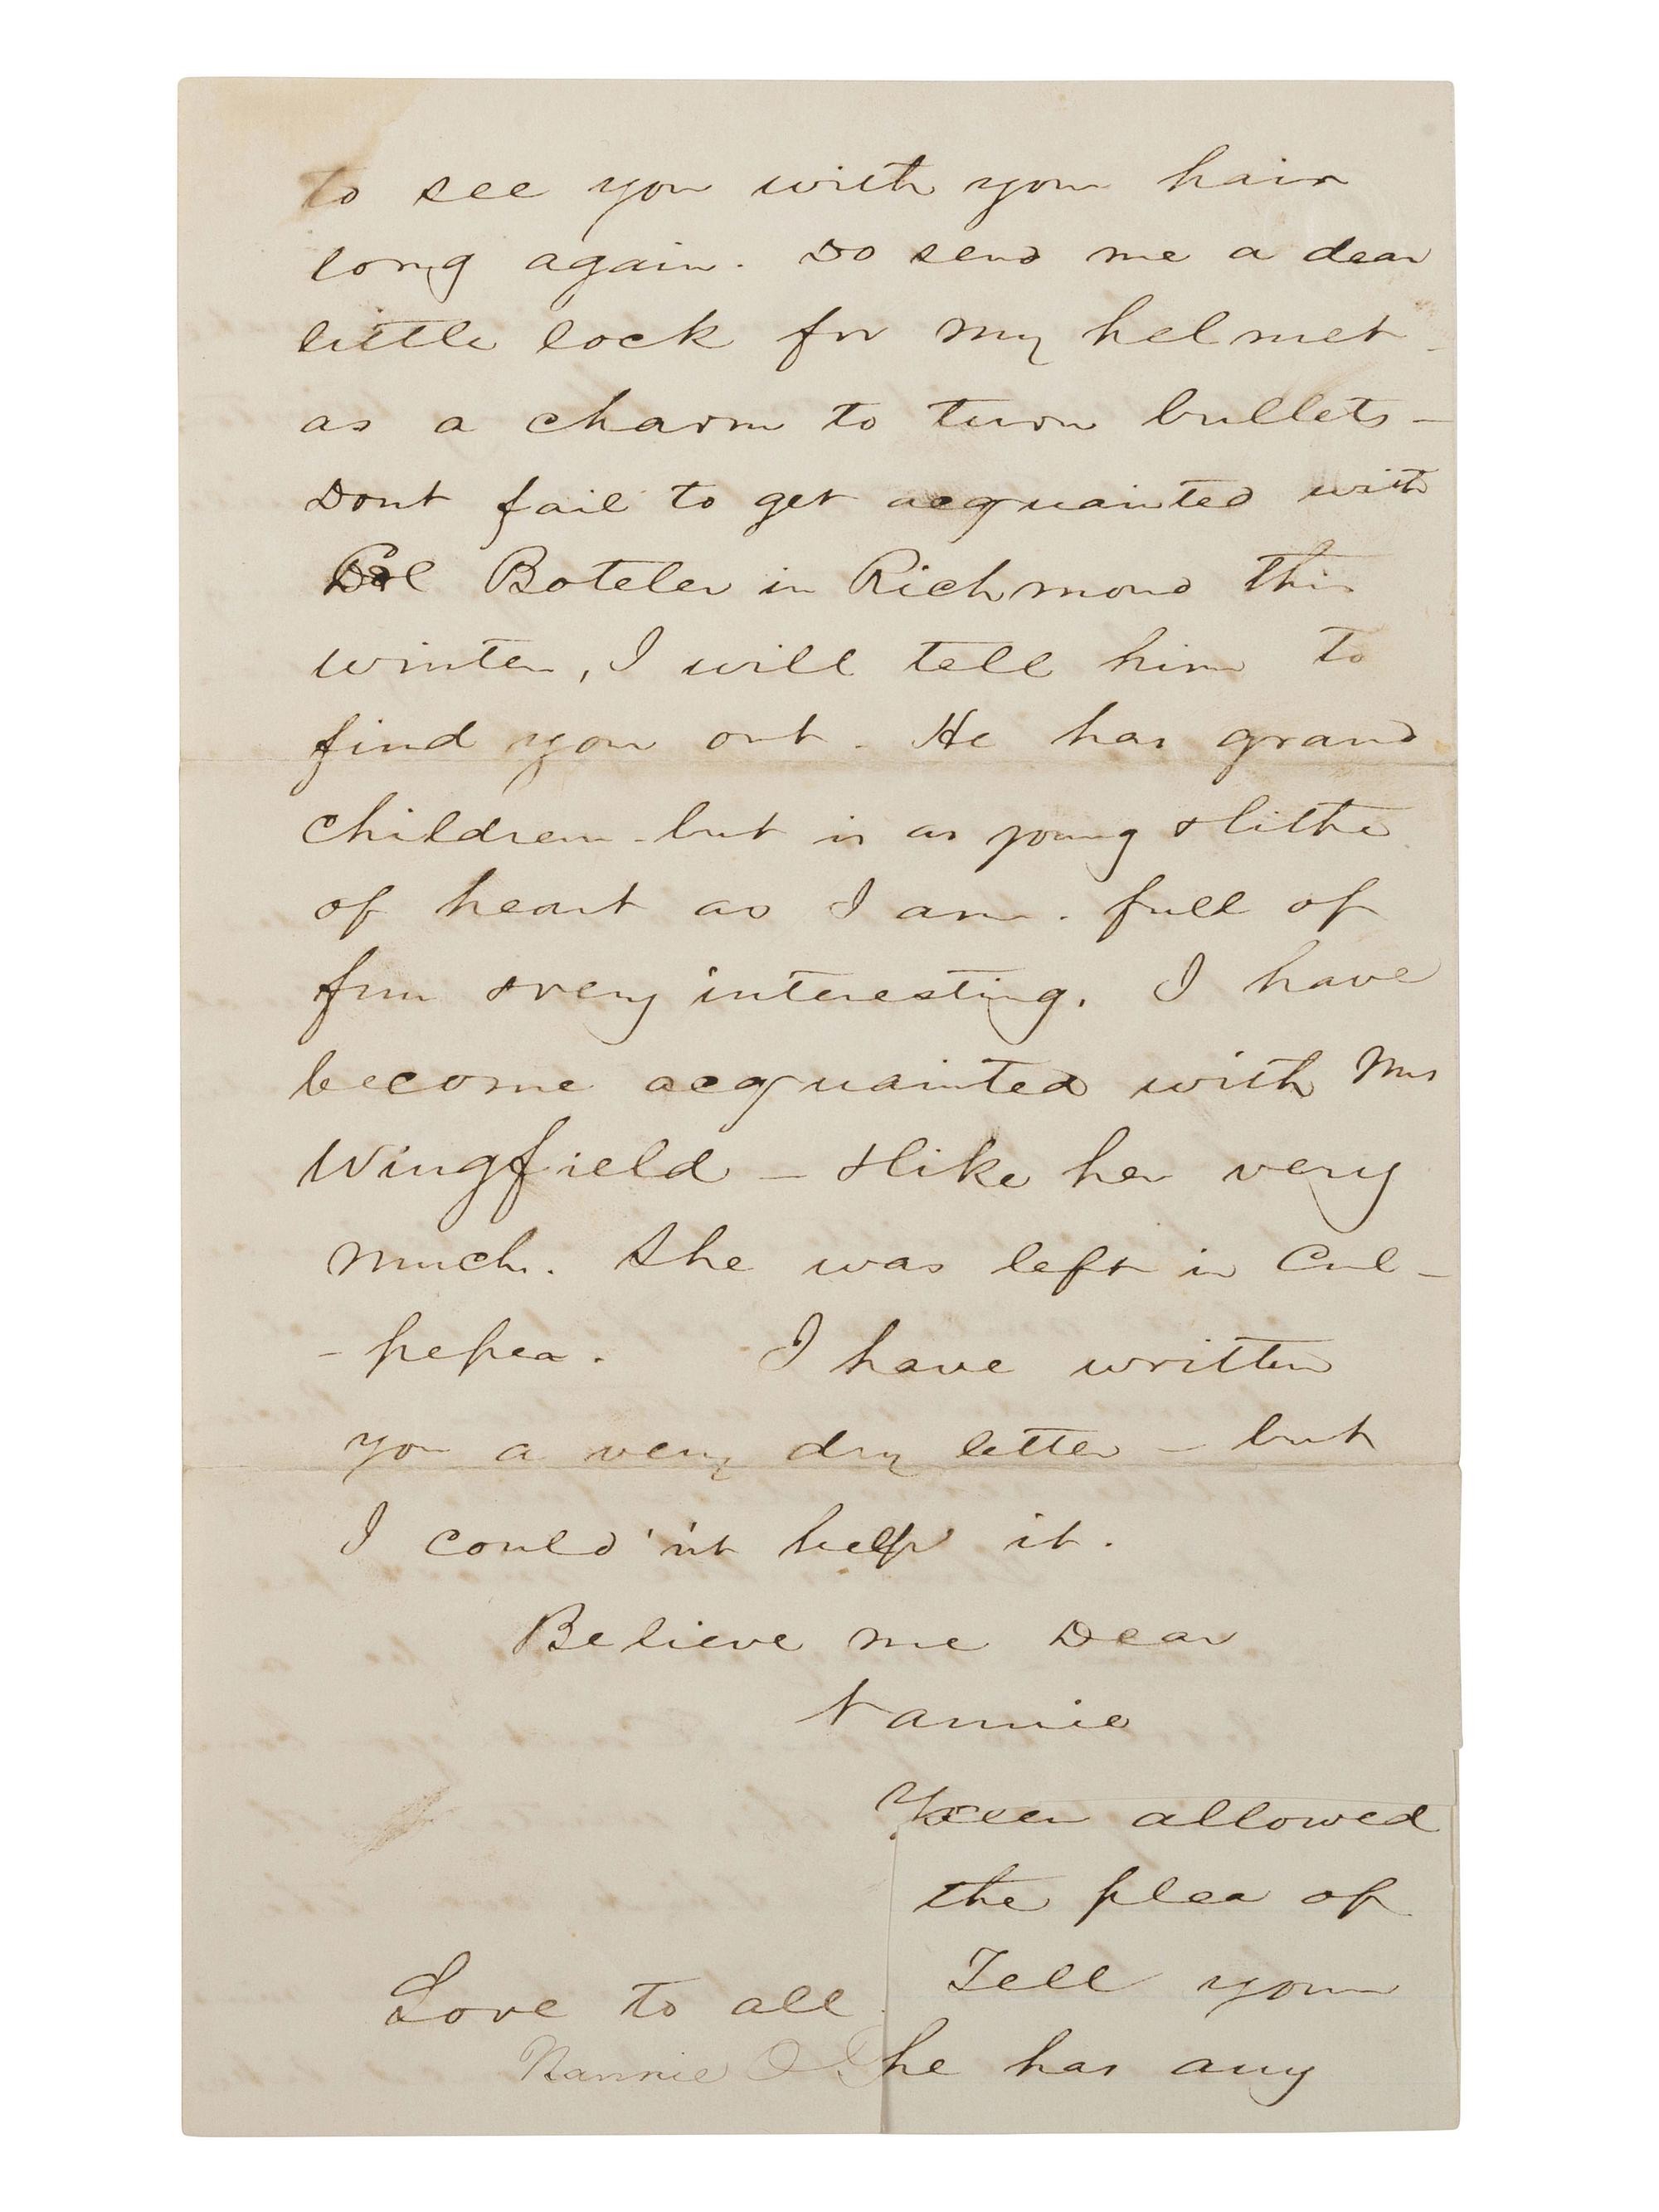 to see you with your hair
long again. Do send me a dear
little lock for my helmet -
as a charm to turn bullets -
Dont fail to get acquainted with
Col Boteler in Richmond this
winter, I will tell him to
find you out. He has grand
children - but is as young & lithe
of heart as I am. full of
fun & very interesting. I have
become acquainted with Mrs
Wingfield - & like her very
much. She was left in Cul-
-peper. I have written
you a very dry letter - but
I could'nt help it.
Believe me Dear
Nannie
Love to all
Nannie O
been allowed
the plea of
Tell your
he has any